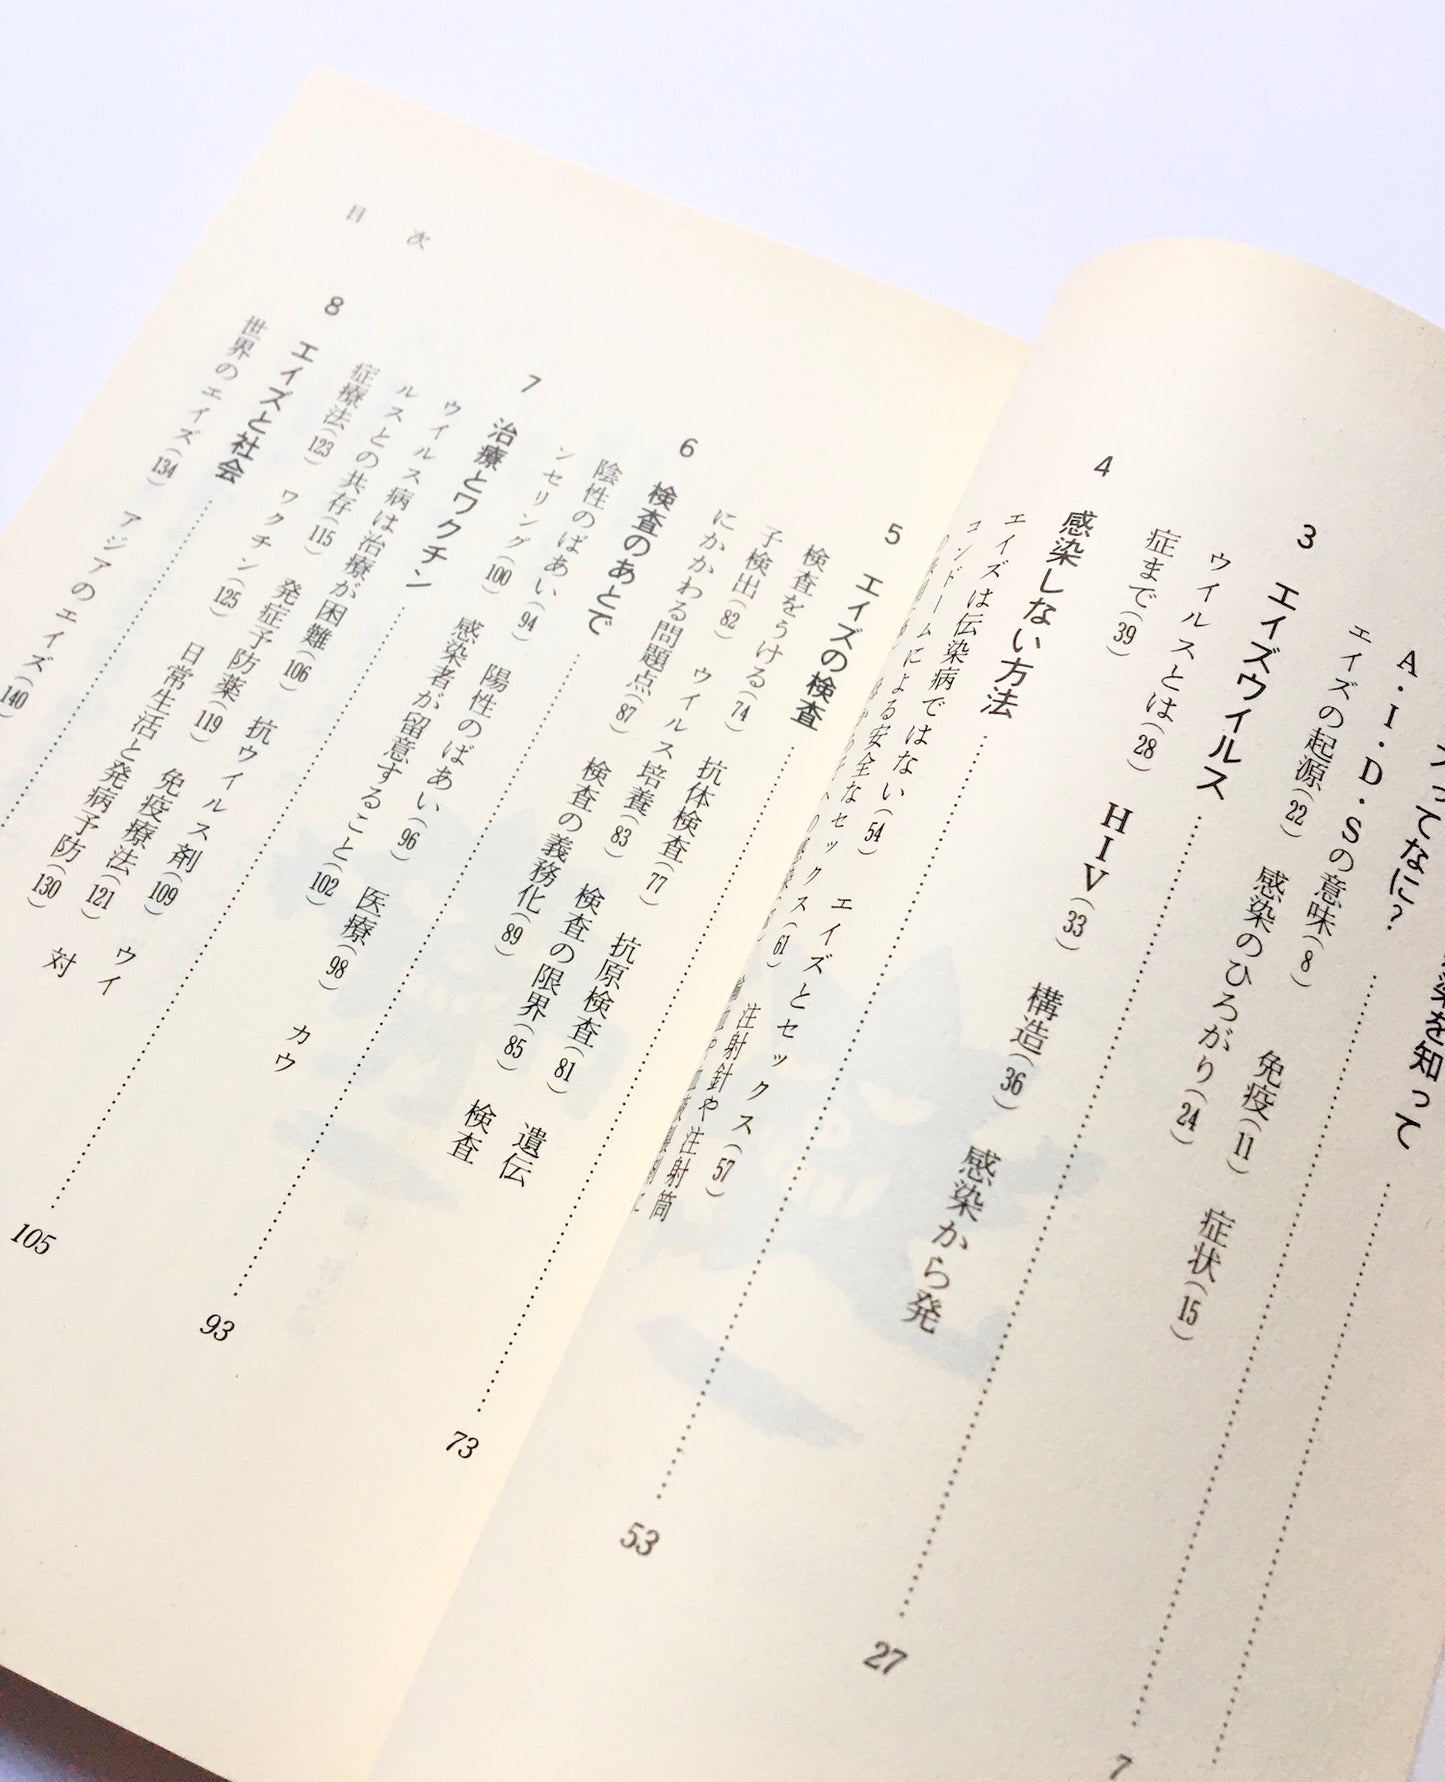 を知って……
ってなに？……7
A・I・D・Sの意味(8)　免疫(11)　症状(15)
エイズの起源(22)　感染のひろがり(24)
3　エイズウイルス……27
ウイルスとは(28)　HIV(33)　構造(36)　感染から発
症まで(39)
4　感染しない方法……53
エイズは伝染病ではない(54)　エイズとセックス(57)
コンドームによる安全なセックス(61)　注射針や注射筒
5　エイズの検査……73
検査をうける(74)　抗体検査(77)　抗原検査(81)　遺伝
子検出(82)　ウイルス培養(83)　検査の限界(85)　検査
にかかわる問題点(87)　検査の義務化(89)
6　検査のあとで……93
陰性のばあい(94)　陽性のばあい(96)　医療(98)　カウ
ンセリング(100)　感染者が留意すること(102)
7　治療とワクチン……105
ウイルス病は治療が困難(106)　抗ウイルス剤(109)　ウイ
ルスとの共存(115)　発症予防薬(119)　免疫療法(121)　対
症療法(123)　ワクチン(125)　日常生活と発病予防(130)
8　エイズと社会……
世界のエイズ(134)　アジアのエイズ(140)
目次